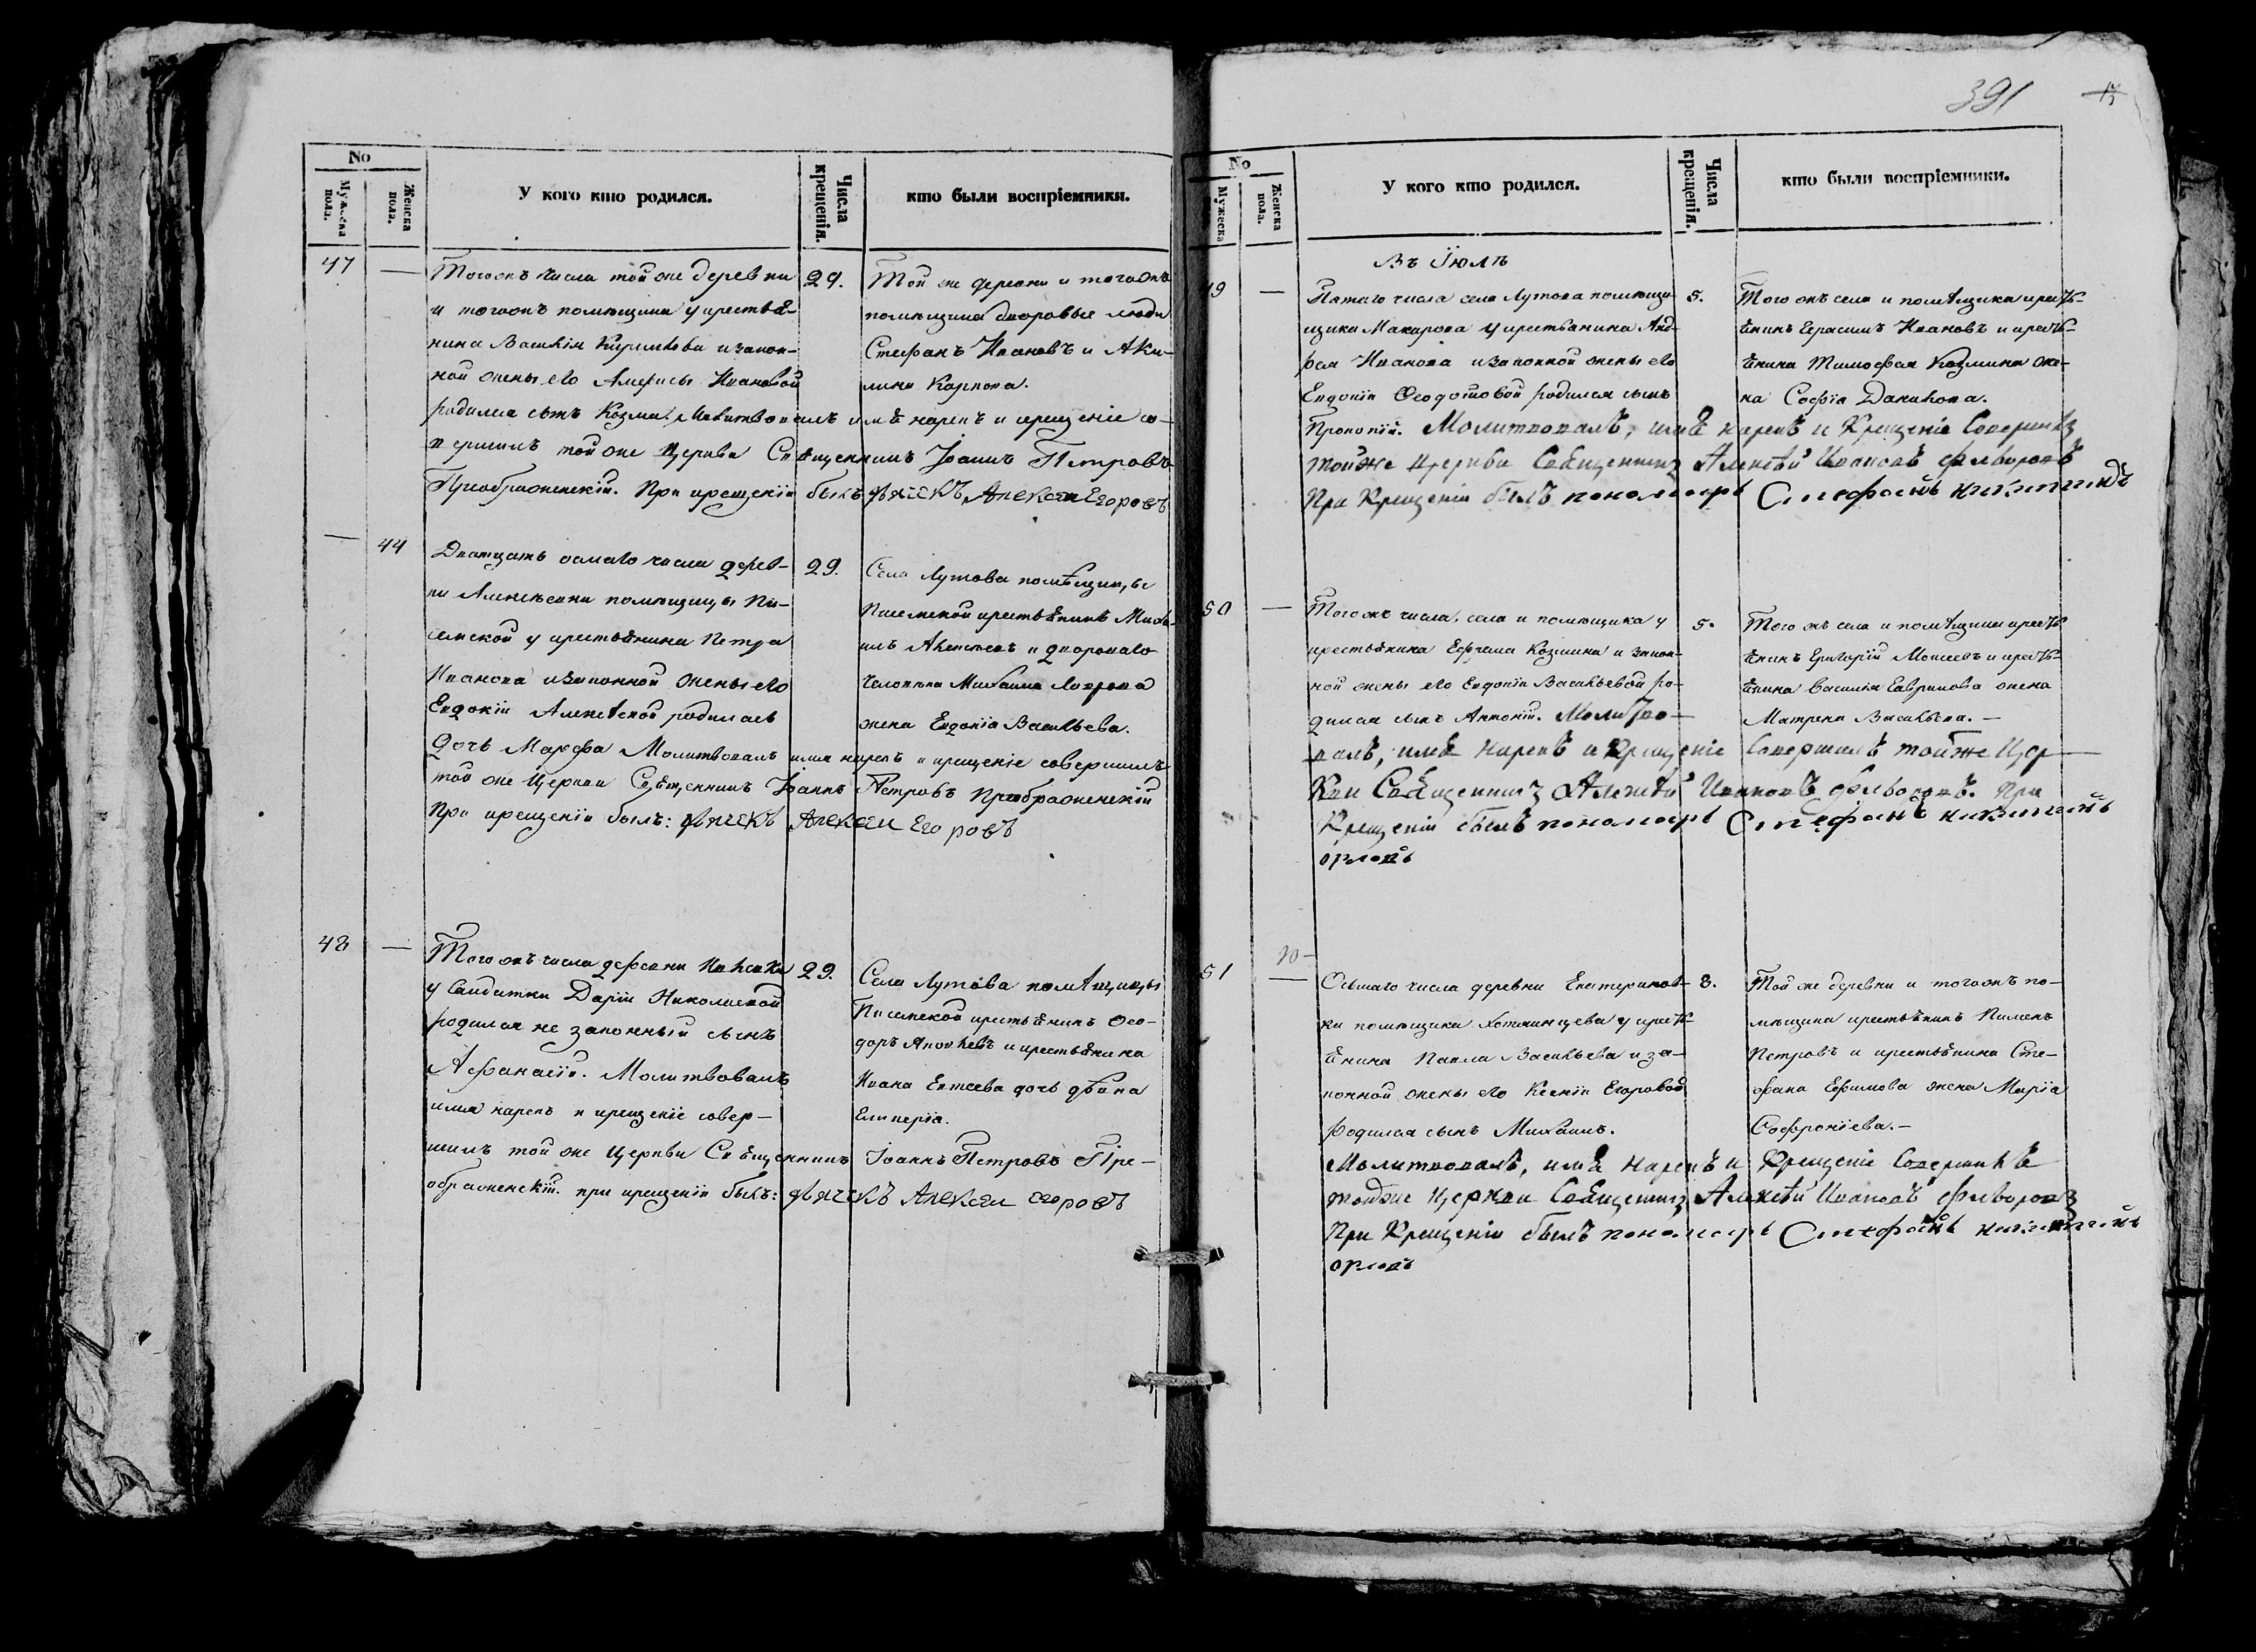 No
Мужеска пола.
Женска пола.
У кого кто родился.
Числа крещенія.
кто были воспріемники.
47 —
Тогожъ числа той же деревни
и тогожъ помѣщика у крестья-
нина Василія Кирилова и закон-
ной жены его Анфисы Ивановой
родился сынъ Козма. Молитвовалъ имя нарекъ и крещеніе со-
вершилъ той же Церкви Священникъ Іоаннъ Петровъ
Преображенскій. При крещеніи былъ дьячекъ Алексеи Егоровъ
29.
Той же деревни и тогожъ
помѣщика дворовые люди
Стефанъ Ивановъ и Аки-
лина Карпова.
— 44
Дватцать осмаго числа дерев-
ни Алексѣевки помѣщицы Пи-
семской у крестьянина Петра
Иванова и законной жены его
Евдокіи Алексѣевой родилась
дочь Марфа Молитвовалъ имя нарекъ и крещеніе совершилъ
той же Церкви Священникъ Іоаннъ Петровъ Преображенскій
При крещеніи былъ: дьячекъ Алексеи Егоровъ
29.
Села Лутова помѣщицы
Писемской крестьянинъ Миха-
илъ Алексѣевъ и двороваго
человѣка Михаила Лаврова
жена Евдокія Васильева.
48 —
Тогожъ числа деревни
у Салдатки Даріи Николаевой
родился не законный сынъ
Афанасій. Молитвовалъ
имя нарекъ и крещеніе совер-
шилъ той же Церкви Священникъ Іоаннъ Петровъ Пре-
ображенскій. при крещеніи былъ: дьячекъ Алексеи егоровъ
29.
Села Лутова помѣщицы
Писемской крестьянинъ Ѳео-
доръ и крестьянина
Ивана Евтеева дочь дѣвка
Гликерія.
391
No
Мужеска
Женска пола.
У кого кто родился.
Числа крещенія.
кто были воспріемники.
Въ Іюлѣ
49 —
Пятаго числа села Лутова помѣщи-
щика Макарова у крестьянина Анд-
рея Иванова и законной жены его
Евдокіи Ѳеодотовой родился сынъ
Прокопій. Молитвовалъ, имя нарекъ и Крещеніе Совершилъ
тойже Церкви Священникъ Алексѣй Ивановъ Флворовъ
При Крещеніи былъ пономарь Стефанъ никитинъ
5.
Того жъ села и помѣщика кресть-
янинъ Герасимъ Ивановъ и кресть-
янина Тимофея Козмина же-
на Софія Данилова.
50 —
Тогожъ числа, села и помѣщика у
крестьянина Ефрема Козмина и закон-
ной жены его Евдокіи Васильевой ро-
дился сынъ Антоній. Молитво-
валъ, имя нарекъ и Крещеніе Совершилъ тойже Цер-
Кви Священникъ Алексѣй Ивановъ Флворовъ. При
Крещеніи былъ пономарь Стефанъ никитинъ
орловъ
5.
Того жъ села и помѣщика кресть-
янинъ Григорій Моисеевъ и кресть-
янина Василія Гаврилова жена
Матрена Васильева. —
51 —
Осьмаго числа деревни Екатеринов-
ки помѣщика Хотяинцева у кресть-
янина Павла Васильева и за-
конной жены его Ксеніи Егоровой
родился сынъ Михаилъ.
Молитвовалъ, имя нарекъ и Крещеніе Совершилъ
тойже Церкви Священникъ Алексѣй Ивановъ Флворовъ
При Крещеніи былъ пономарь Стефанъ никитинъ
орловъ
8.
Той же деревни и тогожъ по-
мѣщика крестьянинъ Пименъ
Петровъ и крестьянина Сте-
фана Ефимова жена Марія
Софроніева. —